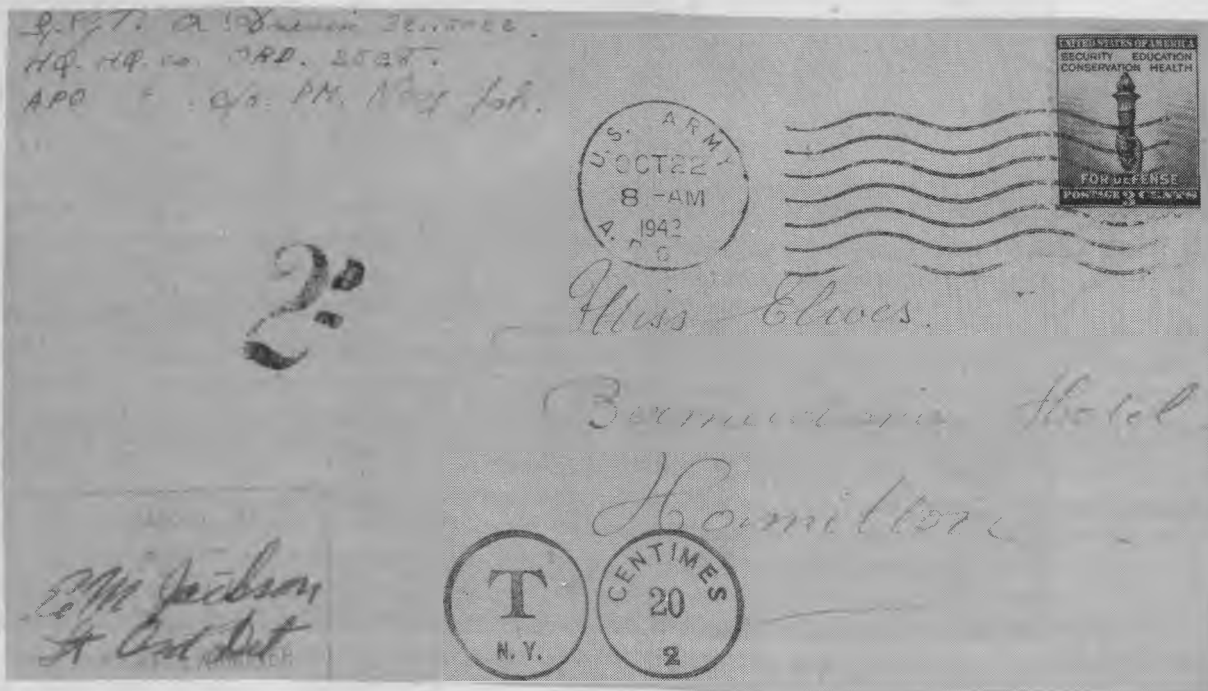 HQ. HQ. co. ORD.
APO c/o. PM. New York.
UNITED STATES OF AMERICA
SECURITY EDUCATION
CONSERVATION HEALTH
FOR DEFENSE
POSTAGE 3 CENTS
U.S. ARMY
OCT 22
8 - AM
1942
A.P.O
2ᴰ
Miss Elwes.
Bermudiana Hotel
Hamilton
Jackson
Lt Ord Det
T
N.Y.
CENTIMES
20
2